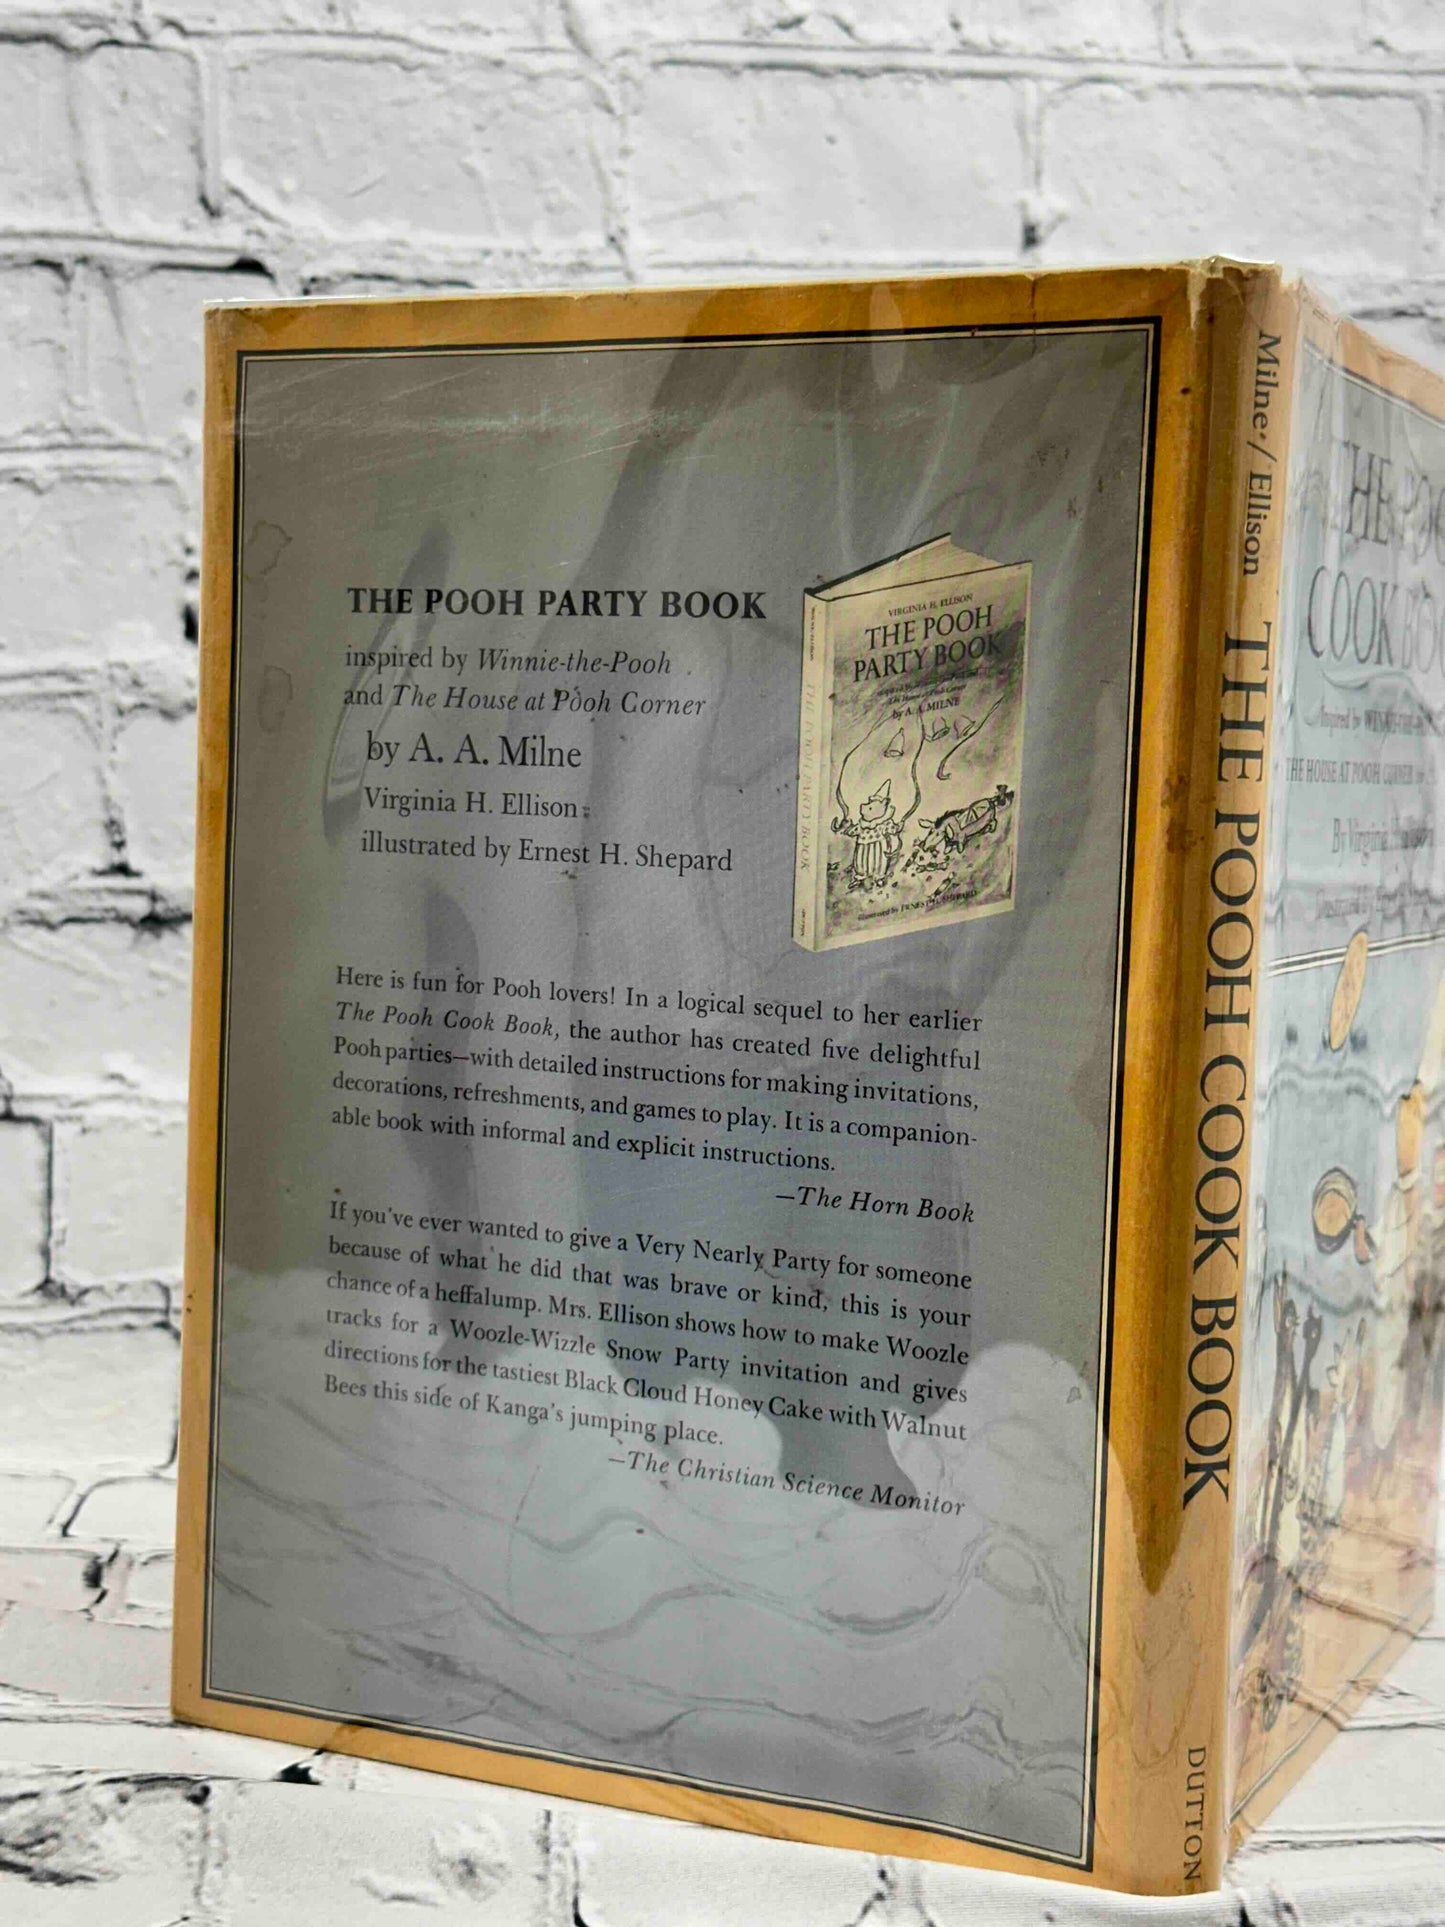 THE POOH PARTY BOOK
inspired by Winnie-the-Pooh
and The House at Pooh Corner
by A. A. Milne
Virginia H. Ellison
illustrated by Ernest H. Shepard
VIRGINIA H. ELLISON
THE POOH
PARTY BOOK
by A. A. MILNE
Illustrated by ERNEST H. SHEPARD
THE POOH PARTY BOOK
Here is fun for Pooh lovers! In a logical sequel to her earlier
The Pooh Cook Book, the author has created five delightful
Pooh parties—with detailed instructions for making invitations,
decorations, refreshments, and games to play. It is a companion-
able book with informal and explicit instructions.
—The Horn Book
If you've ever wanted to give a Very Nearly Party for someone
because of what he did that was brave or kind, this is your
chance of a heffalump. Mrs. Ellison shows how to make Woozle
tracks for a Woozle-Wizzle Snow Party invitation and gives
directions for the tastiest Black Cloud Honey Cake with Walnut
Bees this side of Kanga's jumping place.
—The Christian Science Monitor
Milne / Ellison THE POOH COOK BOOK DUTTON
THE POO
COOK BO
Inspired by
THE HOUSE AT POOH CORNER
By Virginia